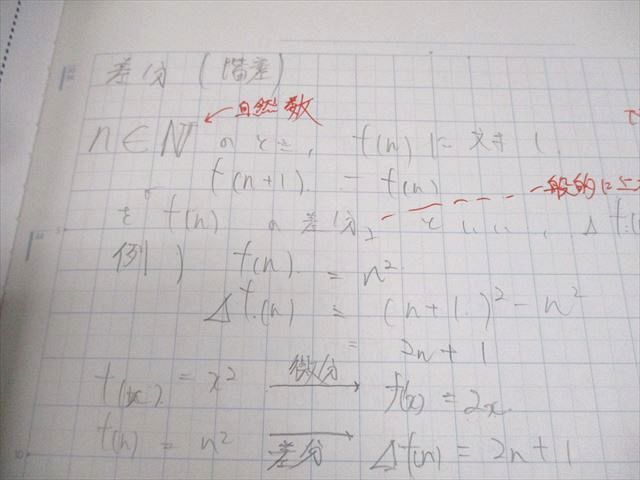 差分 (階差)
← 自然数
n ∈ ℕ のとき, f(n) に対し,
f(n+1) - f(n)
一般的に
を f(n) の差分 といい, Δf(
例) f(n) = n²
Δf(n) = (n+1)² - n²
= 2n+1
f(x) = x² 微分→ f(x) = 2x
f(n) = n² 差分→ Δf(n) = 2n+1